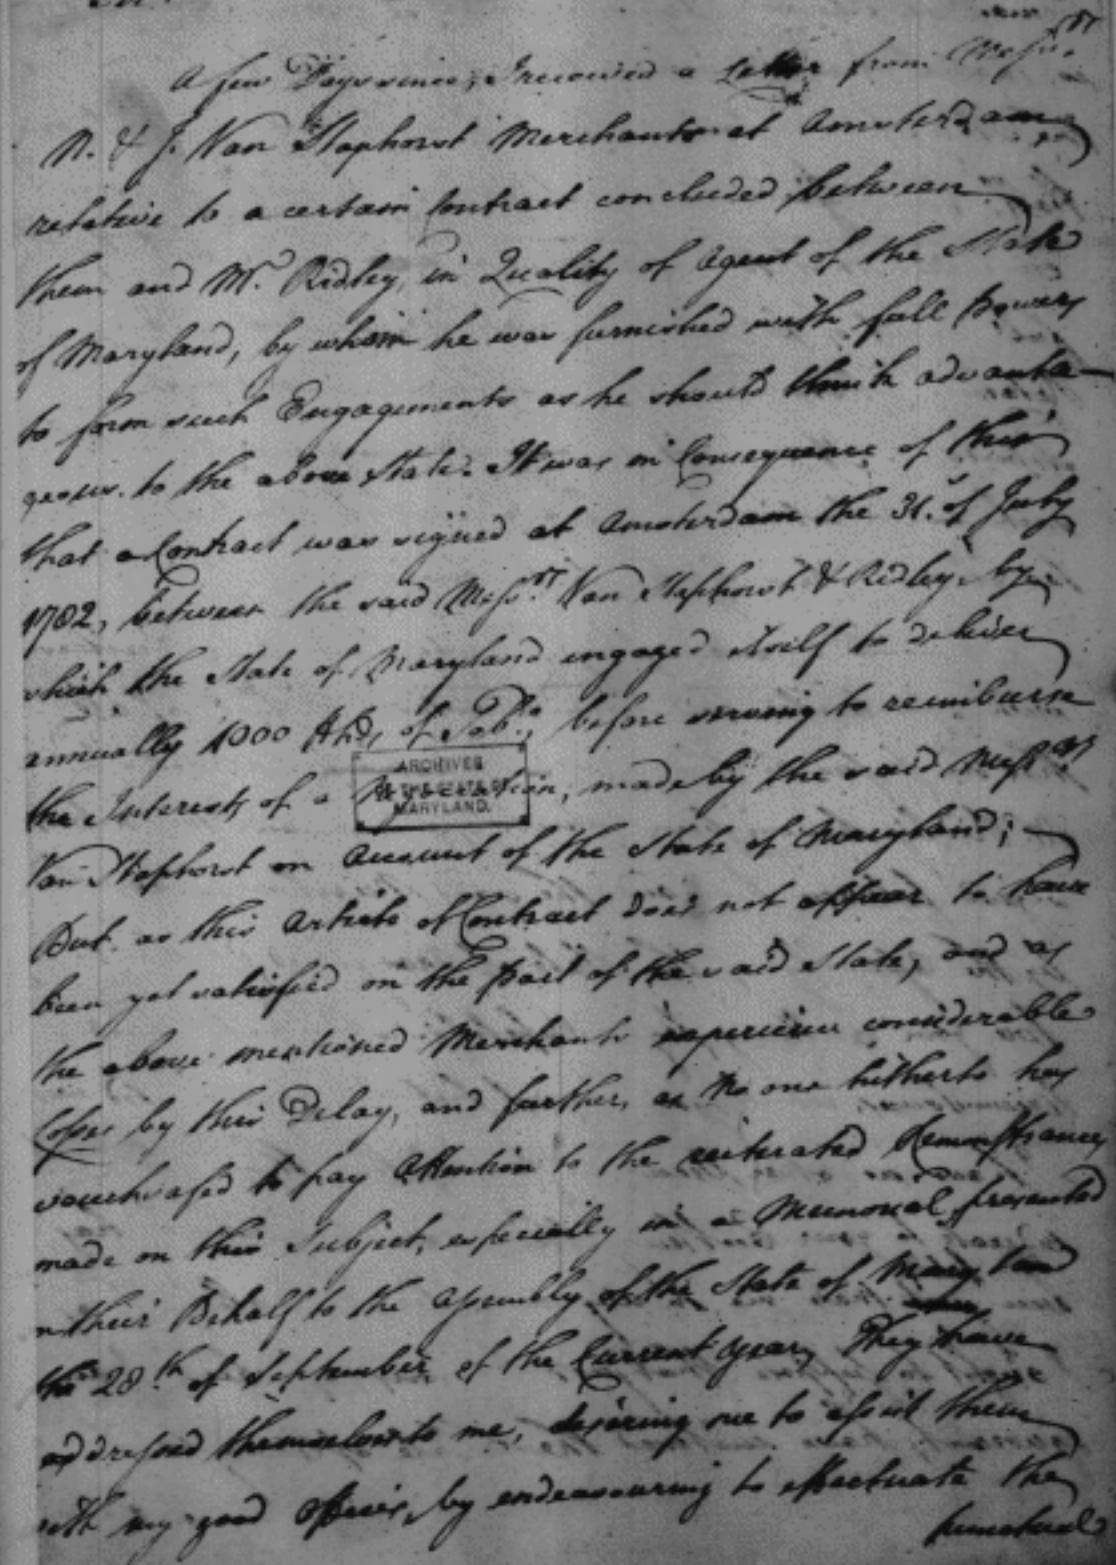 A few Days since, I received a Letter from Messrs.
N. & J. Van Staphorst Merchants at Amsterdam
relative to a certain Contract concluded between
them and Mr. Ridley, in Quality of Agent of the State
of Maryland, by whom he was furnished with full Powers
to form such Engagements as he should think advanta-
geous to the above State. It was in Consequence of this
that a Contract was signed at Amsterdam the 31st of July
1782, between the said Messrs. Van Staphorst & Ridley, by
which the State of Maryland engaged itself to deliver
annually 1000 Hhds of Tobo., before serving to reimburse
the Interests of a Negociation, made by the said Messrs
ARCHIVES
OF THE STATE OF
MARYLAND.
Van Staphorst on Account of the State of Maryland;
But as this Article of Contract does not appear to have
been yet satisfied on the part of the said State, and as
the above mentioned Merchants experience considerable
Losses by this Delay, and further, as no one hitherto has
vouchsafed to pay Attention to the reiterated Remonstrances
made on this Subject, especially in a Memorial presented
in their Behalf to the Assembly of the State of Maryland
the 28th of September of the Current year, They have
addressed themselves to me, desiring me to assist them
with my good offices, by endeavouring to effectuate the
punctual